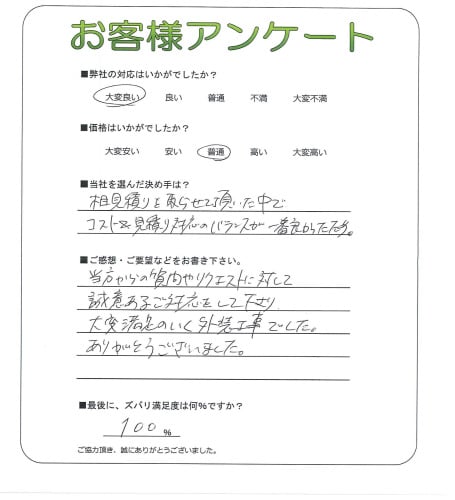 お客様アンケート
■弊社の対応はいかがでしたか？
大変良い 良い 普通 不満 大変不満
■価格はいかがでしたか？
大変安い 安い 普通 高い 大変高い
■当社を選んだ決め手は？
相見積りを取らせて頂いた中で
コストと見積り対応のバランスが一番良かった為。
■ご感想・ご要望などをお書き下さい。
当方からの質問やリクエストに対して
誠意あるご対応をして下さり
大変満足のいく外装工事でした。
ありがとうございました。
■最後に、ズバリ満足度は何%ですか？
100 %
ご協力頂き、誠にありがとうございました。